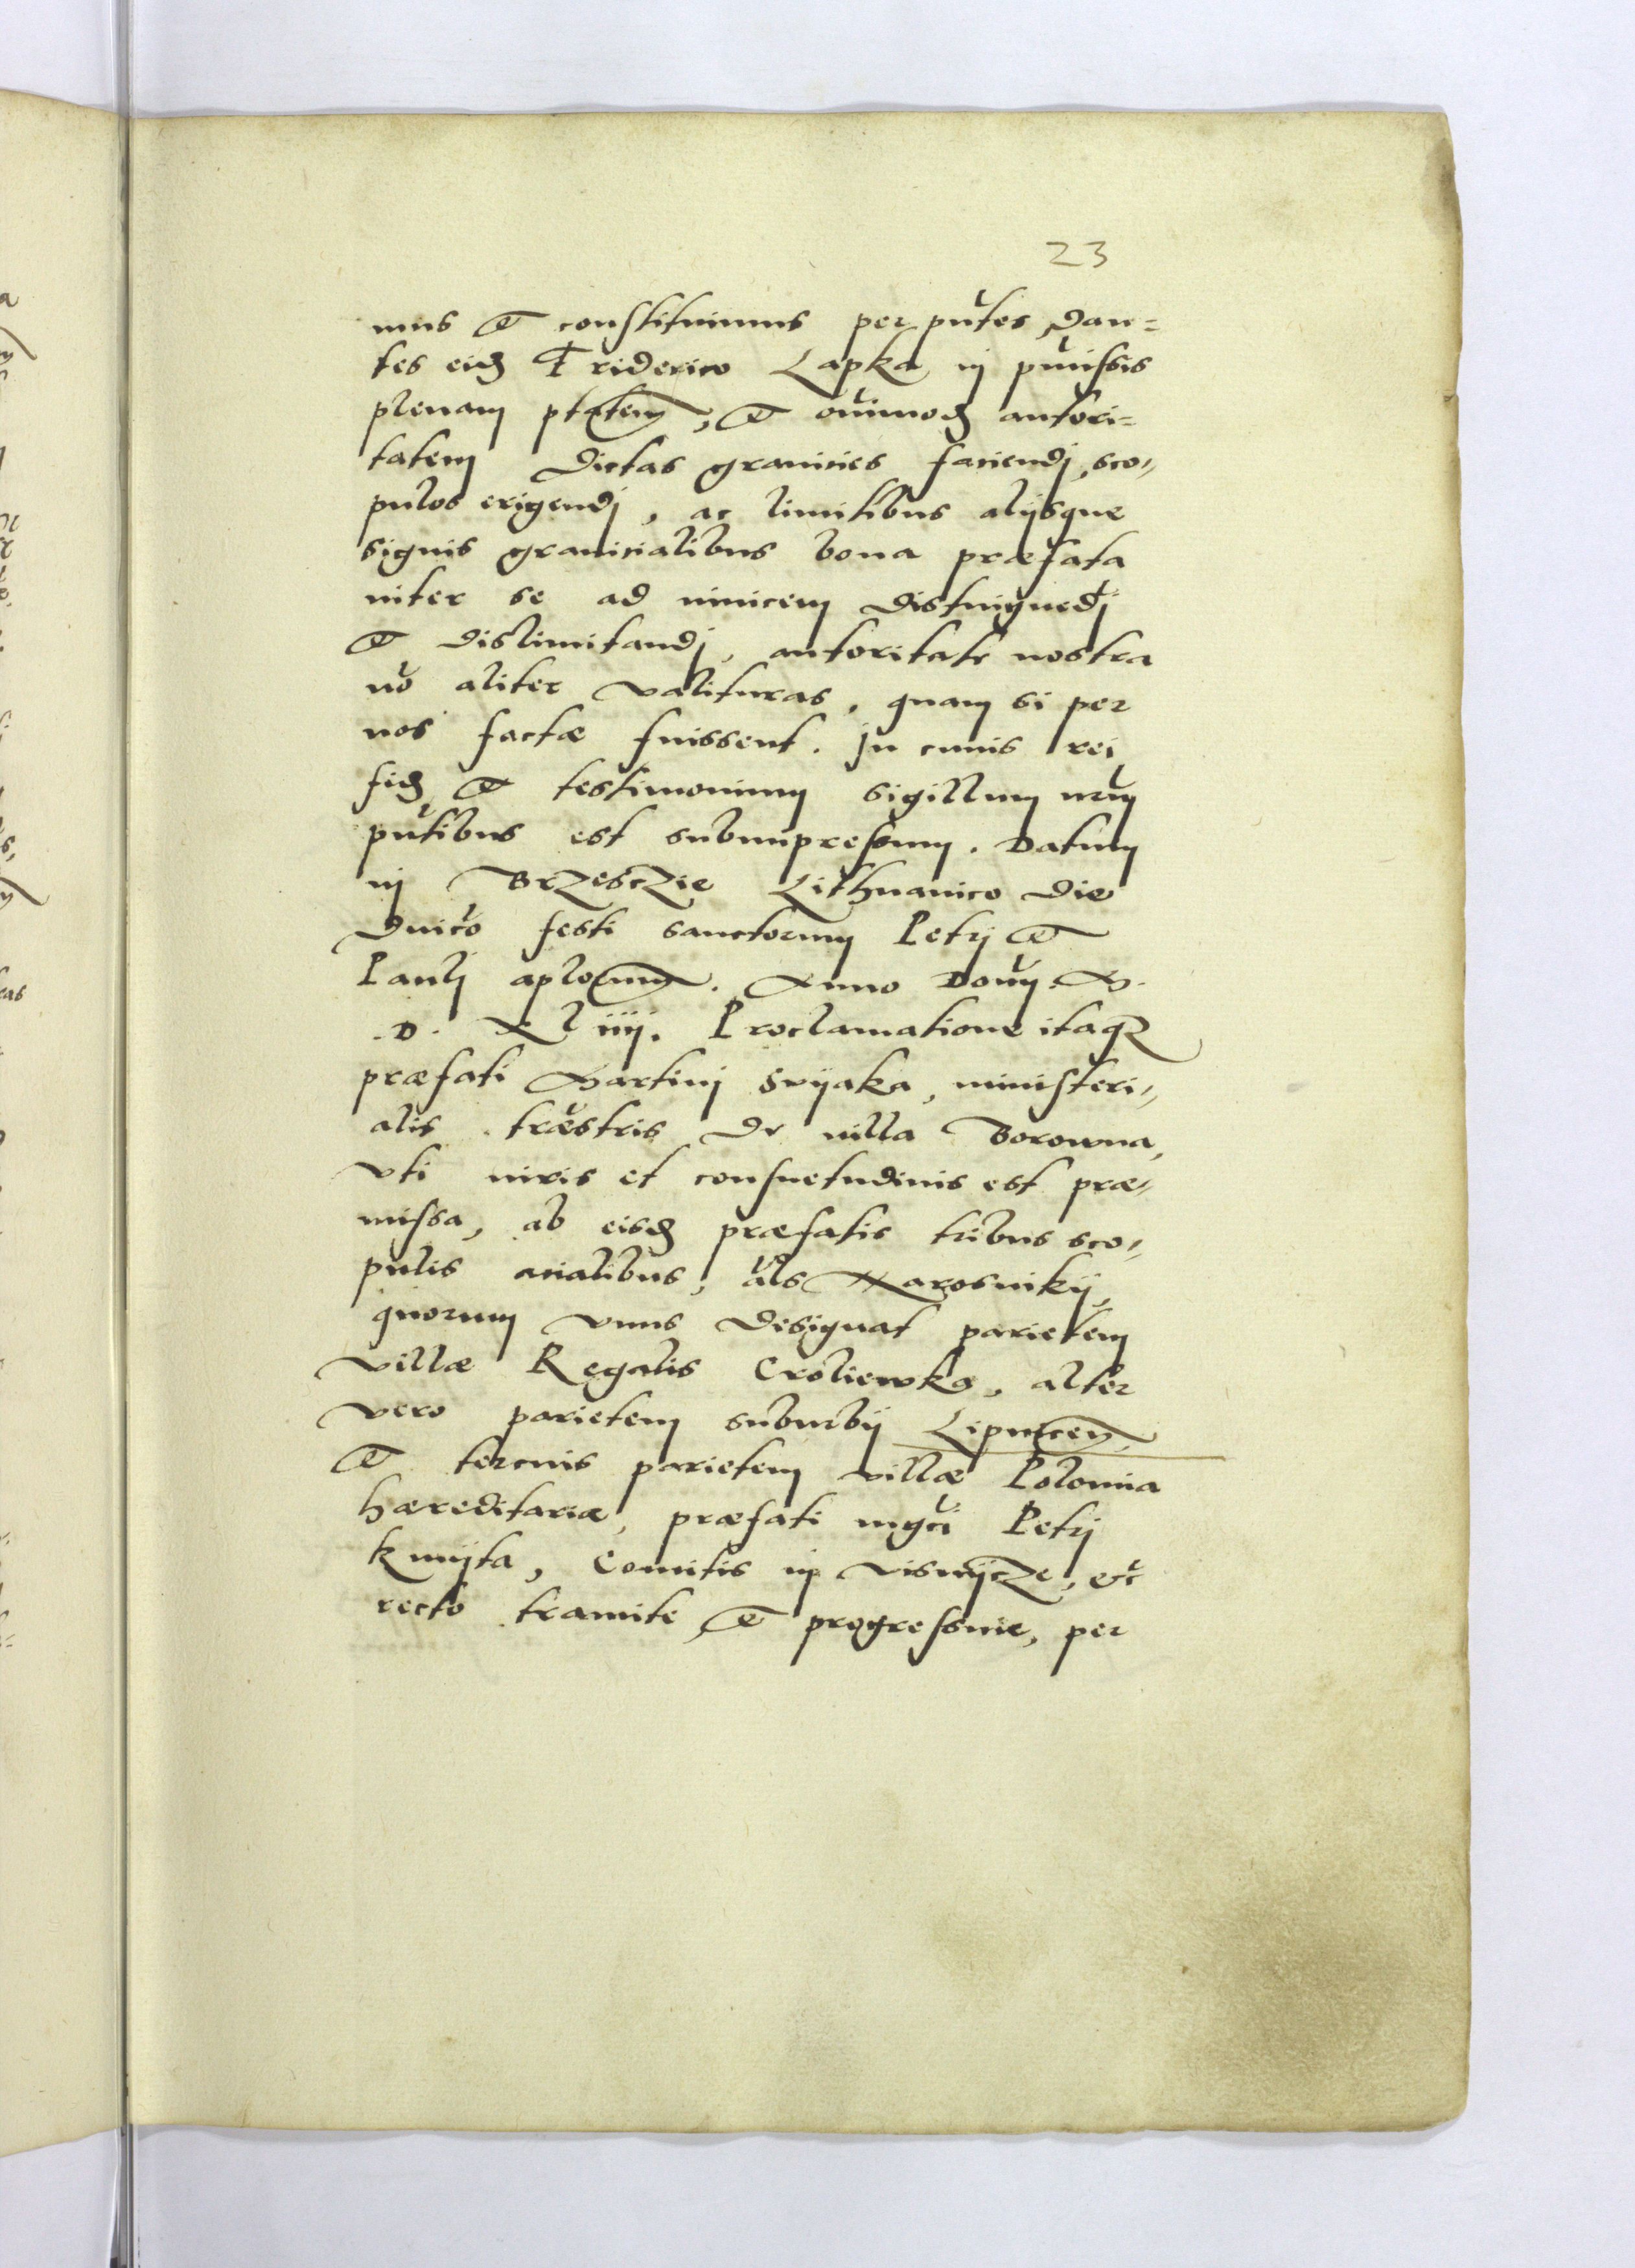 23
mus et constituimus per pñtes, dan=
tes eid[em] Friderico Lapka in pmissis
plenam ptatem, et oımod[am] autori=
tatem dictas granicies faciendj, sco=
pulos erigendj, ac limitibus alijsque
signis granicialibus bona præfata
inter se ad inuicem distinguedj
et dislimitandj, autoritate nostra
nõ aliter valituras, quam si per
nos factæ fuissent. In cuius rei
fid[em] et testimonium sigillum nrm
pñtibus est subimpressum. Datum
in Brzesczie Lithuanico die
dnico festi sanctorum Petrj et
Paulj aplorum. Anno Domj. M.
.D. XL iiij. Proclamatione itaq3
præfati Martinj Svijaka, ministeri=
alis træstris de villa Borowna,
vti iuris et consuetudinis est præ=
missa, ab eisd[em] præfatis tribus sco=
pulis acialibus, als Narosnikij,
quorum vnus designat parietem
villæ Regalis Croliewka, alter
vero parietem suburbij Lipnicen,
et tercius parietem villæ Polomia
hæreditariæ, præfati mgci Petrj
kmijta, Comitis in Visnijcze, etc
recto tramite et progressiue, per